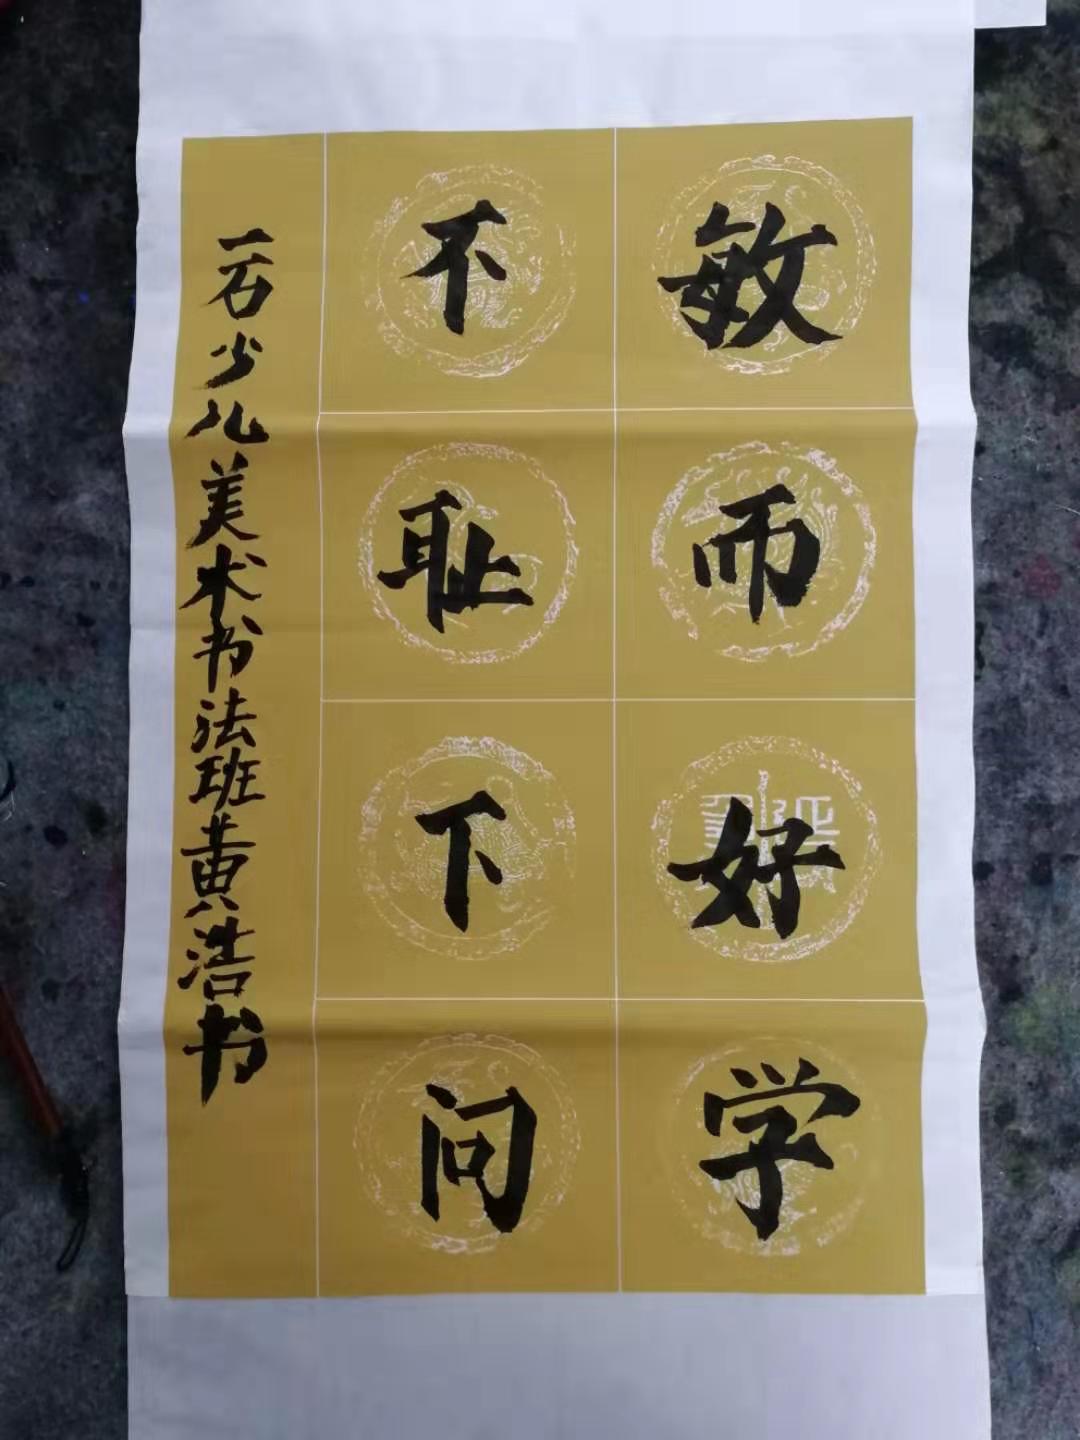 敏而好学
不耻下问
一石少儿美术书法班黄浩书